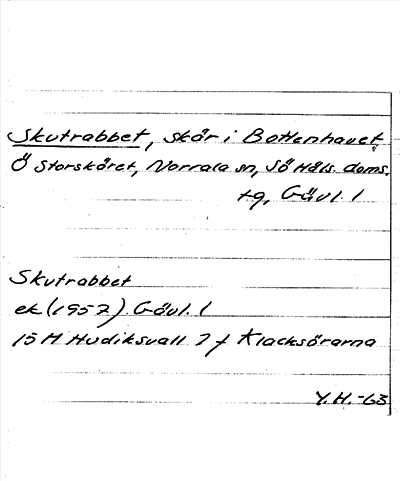 Skutrabbet, skär i Bottenhavet,
Ö Storskäret, Norrala sn, Sö Häls. doms.
tg, Gävl. l
Skutrabbet
ek (1957) Gävl. l
15 H Hudiksvall 7 f Klacksörarna
Y.H.-63